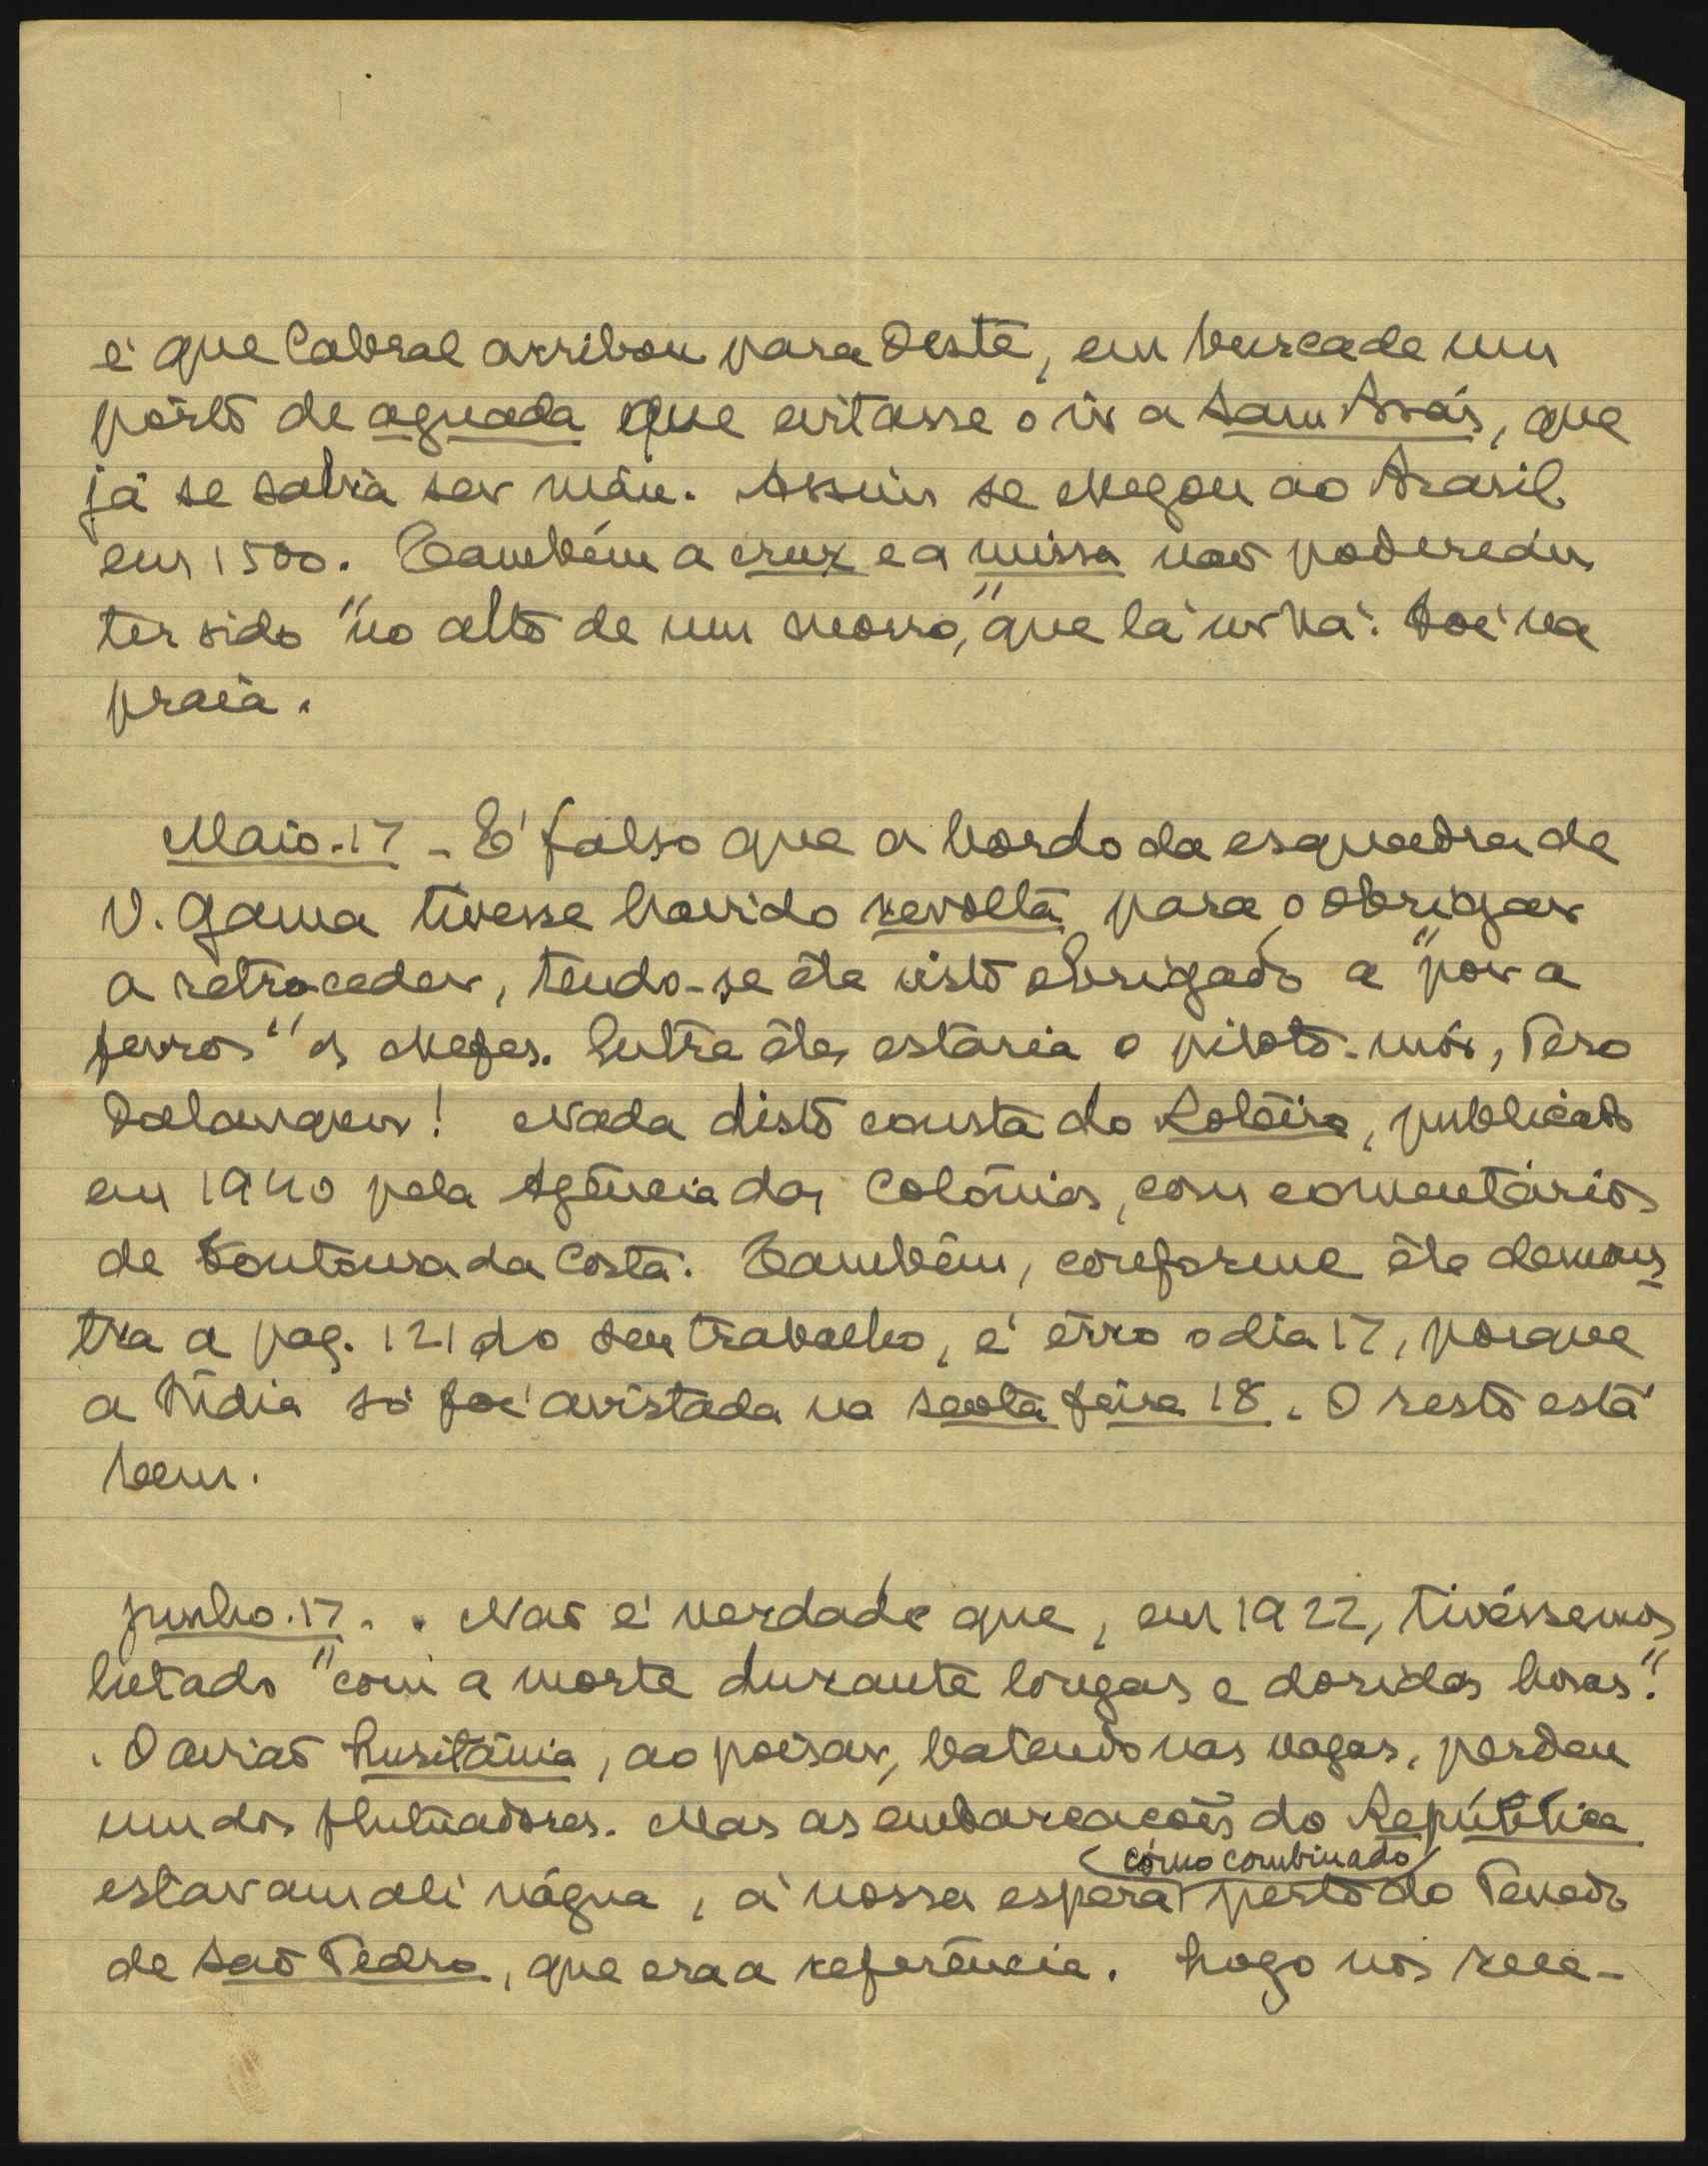 é que Cabral arribou para Oeste, em busca de um
pôrto de aguada que evitasse o ir a Sam Brás, que
já se sabia ser máu. Assim se chegou ao Brasil
em 1500. Também a cruz e a missa não poderiam
ter sido "no alto de um morro," que lá não há. Foi na
praia.
Maio.17 - É falso que a bordo da esquadra de
V. Gama tivesse havido revolta para o obrigar
a retroceder, tendo-se êle visto obrigado a "pôr a
ferros" os chefes. Entre êles estaria o pilôto-mór, Pero
Dalanquer! Nada disto consta do Rotêiro, publicado
em 1940 pela Agência das Colónias, com comentários
de Fontoura da Costa. Também, conforme êle demons
tra a pag. 121 do seu trabalho, é êrro o dia 17, porque
a Índia só foi avistada na sexta feira 18. O resto está
bem.
Junho.17. . Não é verdade que, em 1922, tivéssemos
lutado "com a morte durante longas e doridas horas".
. O avião Lusitânia, ao poisar, batendo nas vagas, perdeu
um dos flutuadores. Mas as embarcações do República
como combinado
estavam ali nágua, á nossa espera perto do Penedo
de São Pedro, que era a referência. Logo nos rece-